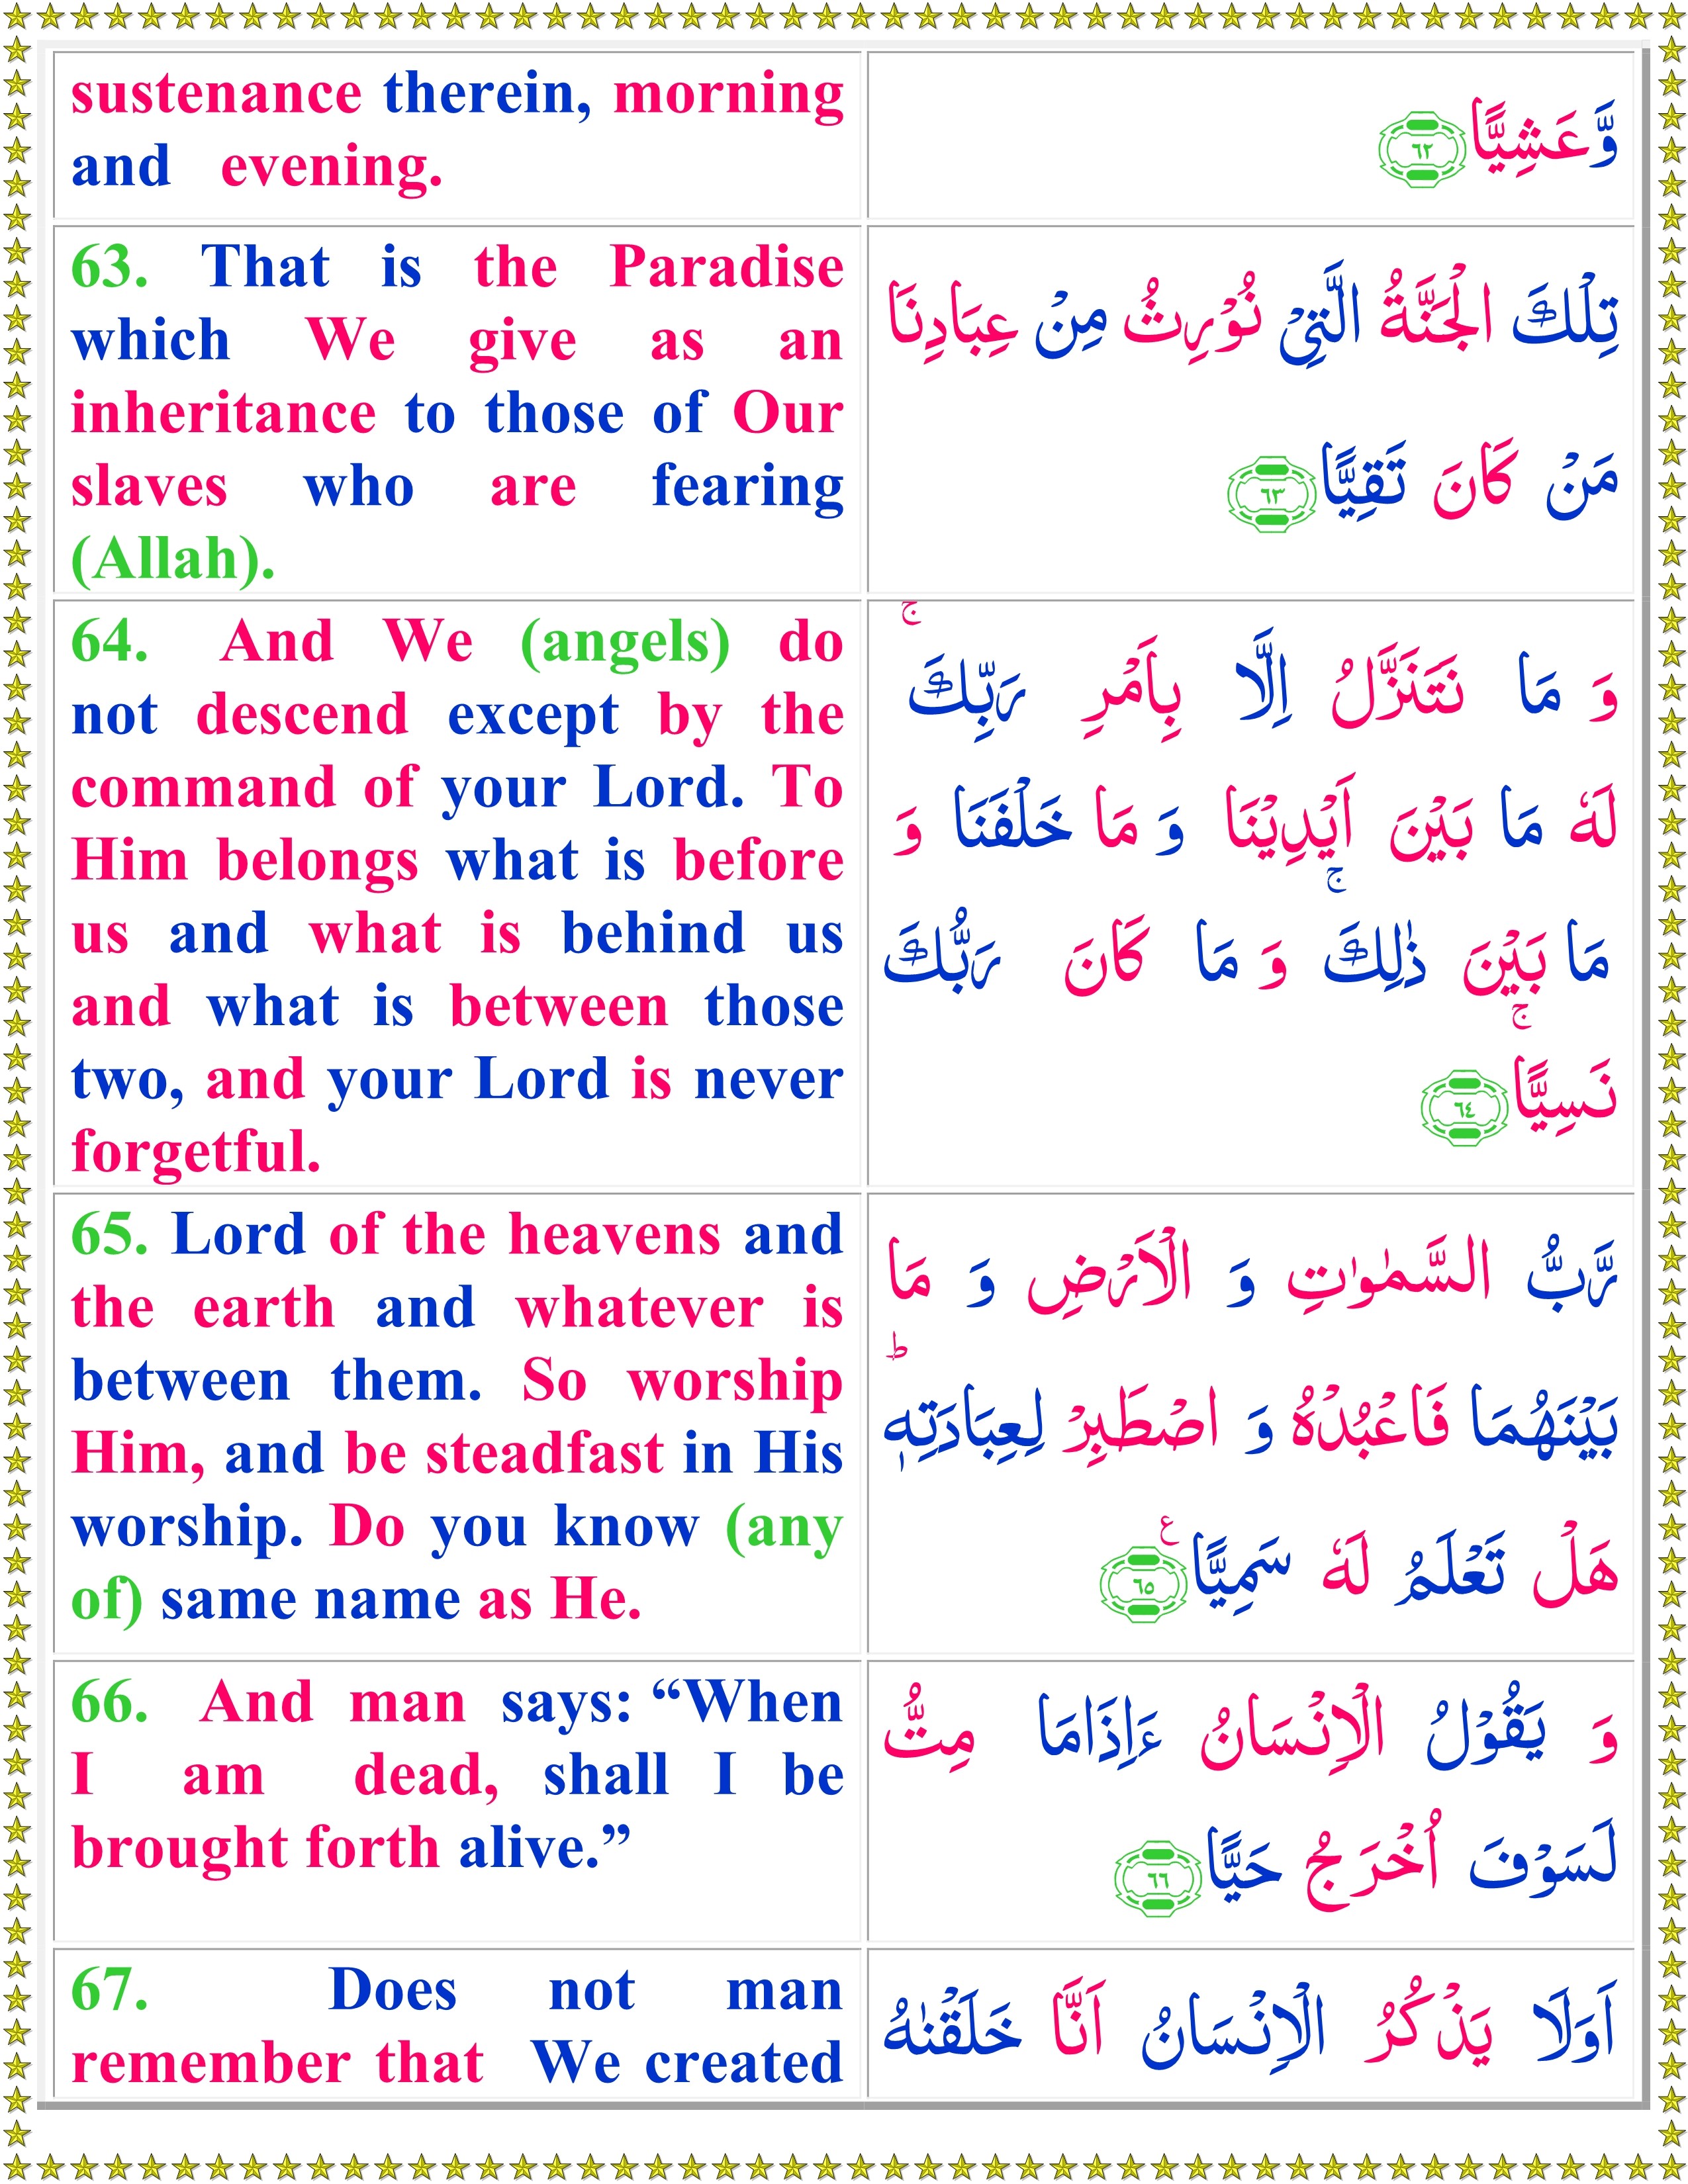 sustenance therein, morning
and evening.
وَّعَشِيًّا ٦٢
63. That is the Paradise
which We give as an
inheritance to those of Our
slaves who are fearing
(Allah).
تِلْكَ الْجَنَّةُ الَّتِىْ نُوْرِثُ مِنْ عِبَادِنَا
مَنْ كَانَ تَقِيًّا ٦٣
64. And We (angels) do
not descend except by the
command of your Lord. To
Him belongs what is before
us and what is behind us
and what is between those
two, and your Lord is never
forgetful.
وَ مَا نَتَنَزَّلُ اِلَّا بِاَمْرِ رَبِّكَ ۚ
لَهٗ مَا بَيْنَ اَيْدِيْنَا وَ مَا خَلْفَنَا وَ
مَا بَيْنَ ذٰلِكَ ۚ وَ مَا كَانَ رَبُّكَ
نَسِيًّا ۚ ٦٤
65. Lord of the heavens and
the earth and whatever is
between them. So worship
Him, and be steadfast in His
worship. Do you know (any
of) same name as He.
رَّبُّ السَّمٰوٰتِ وَ الْاَرْضِ وَ مَا
بَيْنَهُمَا فَاعْبُدْهُ وَ اصْطَبِرْ لِعِبَادَتِهٖ ؕ
هَلْ تَعْلَمُ لَهٗ سَمِيًّا ٦٥ ع
66. And man says: “When
I am dead, shall I be
brought forth alive.”
وَ يَقُوْلُ الْاِنْسَانُ ءَاِذَامَا مِتُّ
لَسَوْفَ اُخْرَجُ حَيًّا ٦٦
67. Does not man
remember that We created
اَوَلَا يَذْكُرُ الْاِنْسَانُ اَنَّا خَلَقْنٰهُ